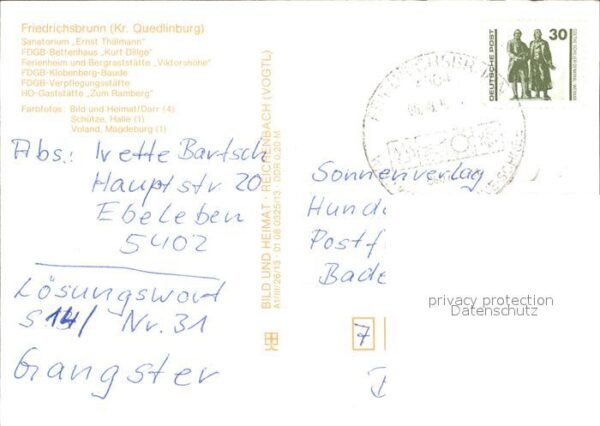 Friedrichsbrunn (Kr. Quedlinburg)
Sanatorium „Ernst Thälmann"
FDGB-Bettenhaus „Kurt Dillge"
Ferienheim und Bergraststätte „Viktorshöhe"
FDGB-Klobenberg-Baude
FDGB-Verpflegungsstätte
HO-Gaststätte „Zum Ramberg"
Farbfotos: Bild und Heimat/Darr (4)
Schütze, Halle (1)
Voland, Magdeburg (1)
Abs.: Ivette Bartsch
Hauptstr. 20
Ebeleben
5402
Lösungswort
S 14/ Nr. 31
Gangster
BILD UND HEIMAT · REICHENBACH (VOGTL)
A1/III/26/13 · 01 08 0325/13 · DDR 0,20 M
DEUTSCHE POST
30
Sonnenverlag
Hund
Postf
Bade
7
privacy protection
Datenschutz